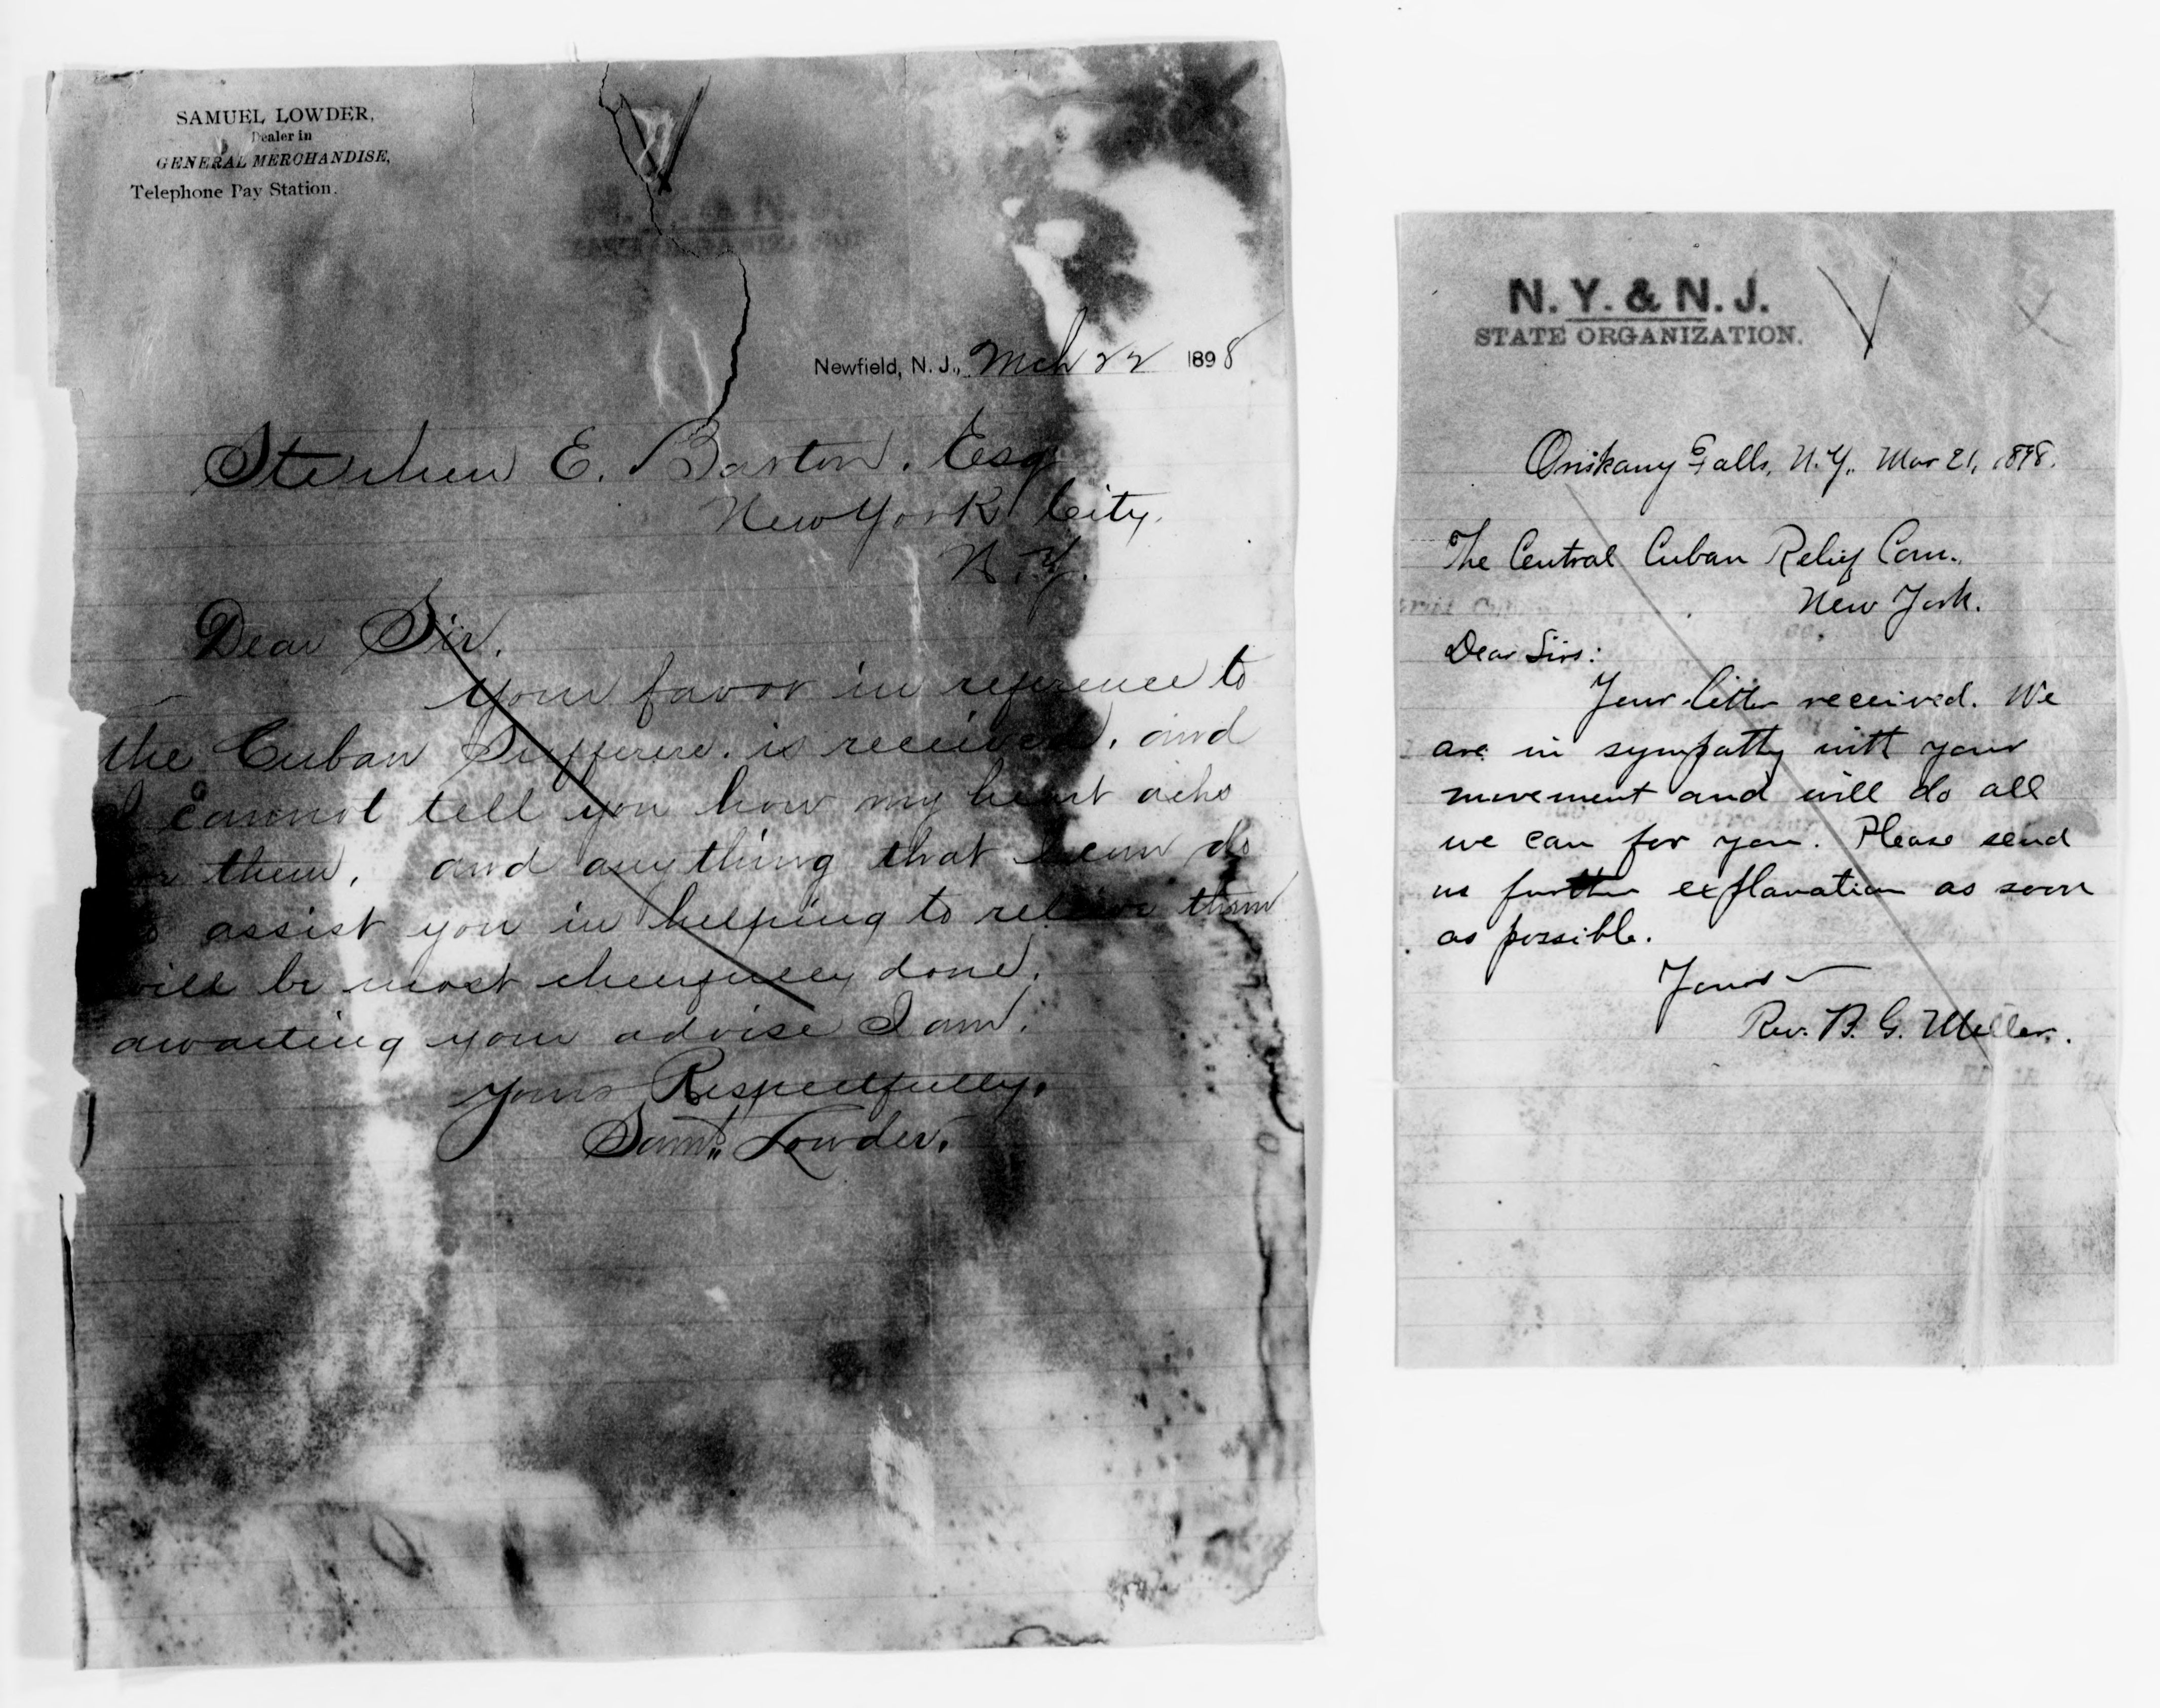 SAMUEL LOWDER,
Dealer in
GENERAL MERCHANDISE,
Telephone Pay Station.
Newfield, N. J., Mch 22 1898
Stephen E. Barton. Esq
New York City.
N.Y.
Dear Sir.
Your favor in reference to
the Cuban Sufferers. is received. and
I cannot tell you how my heart achs
them. and anything that I can do
assist you in helping to relieve them
will be most cheerfully done.
awaiting your advise I am.
Yours Respectfully.
Saml. Lowder.
N. Y. & N. J.
STATE ORGANIZATION.
Oriskany Falls, N.Y., Mar 21, 1898.
The Central Cuban Relief Com.
New York.
Dear Sirs:
Your letter received. We
are in sympathy with your
movement and will do all
we can for you. Please send
us further explanation as soon
as possible.
Yours
Rev. B. G. Miller.